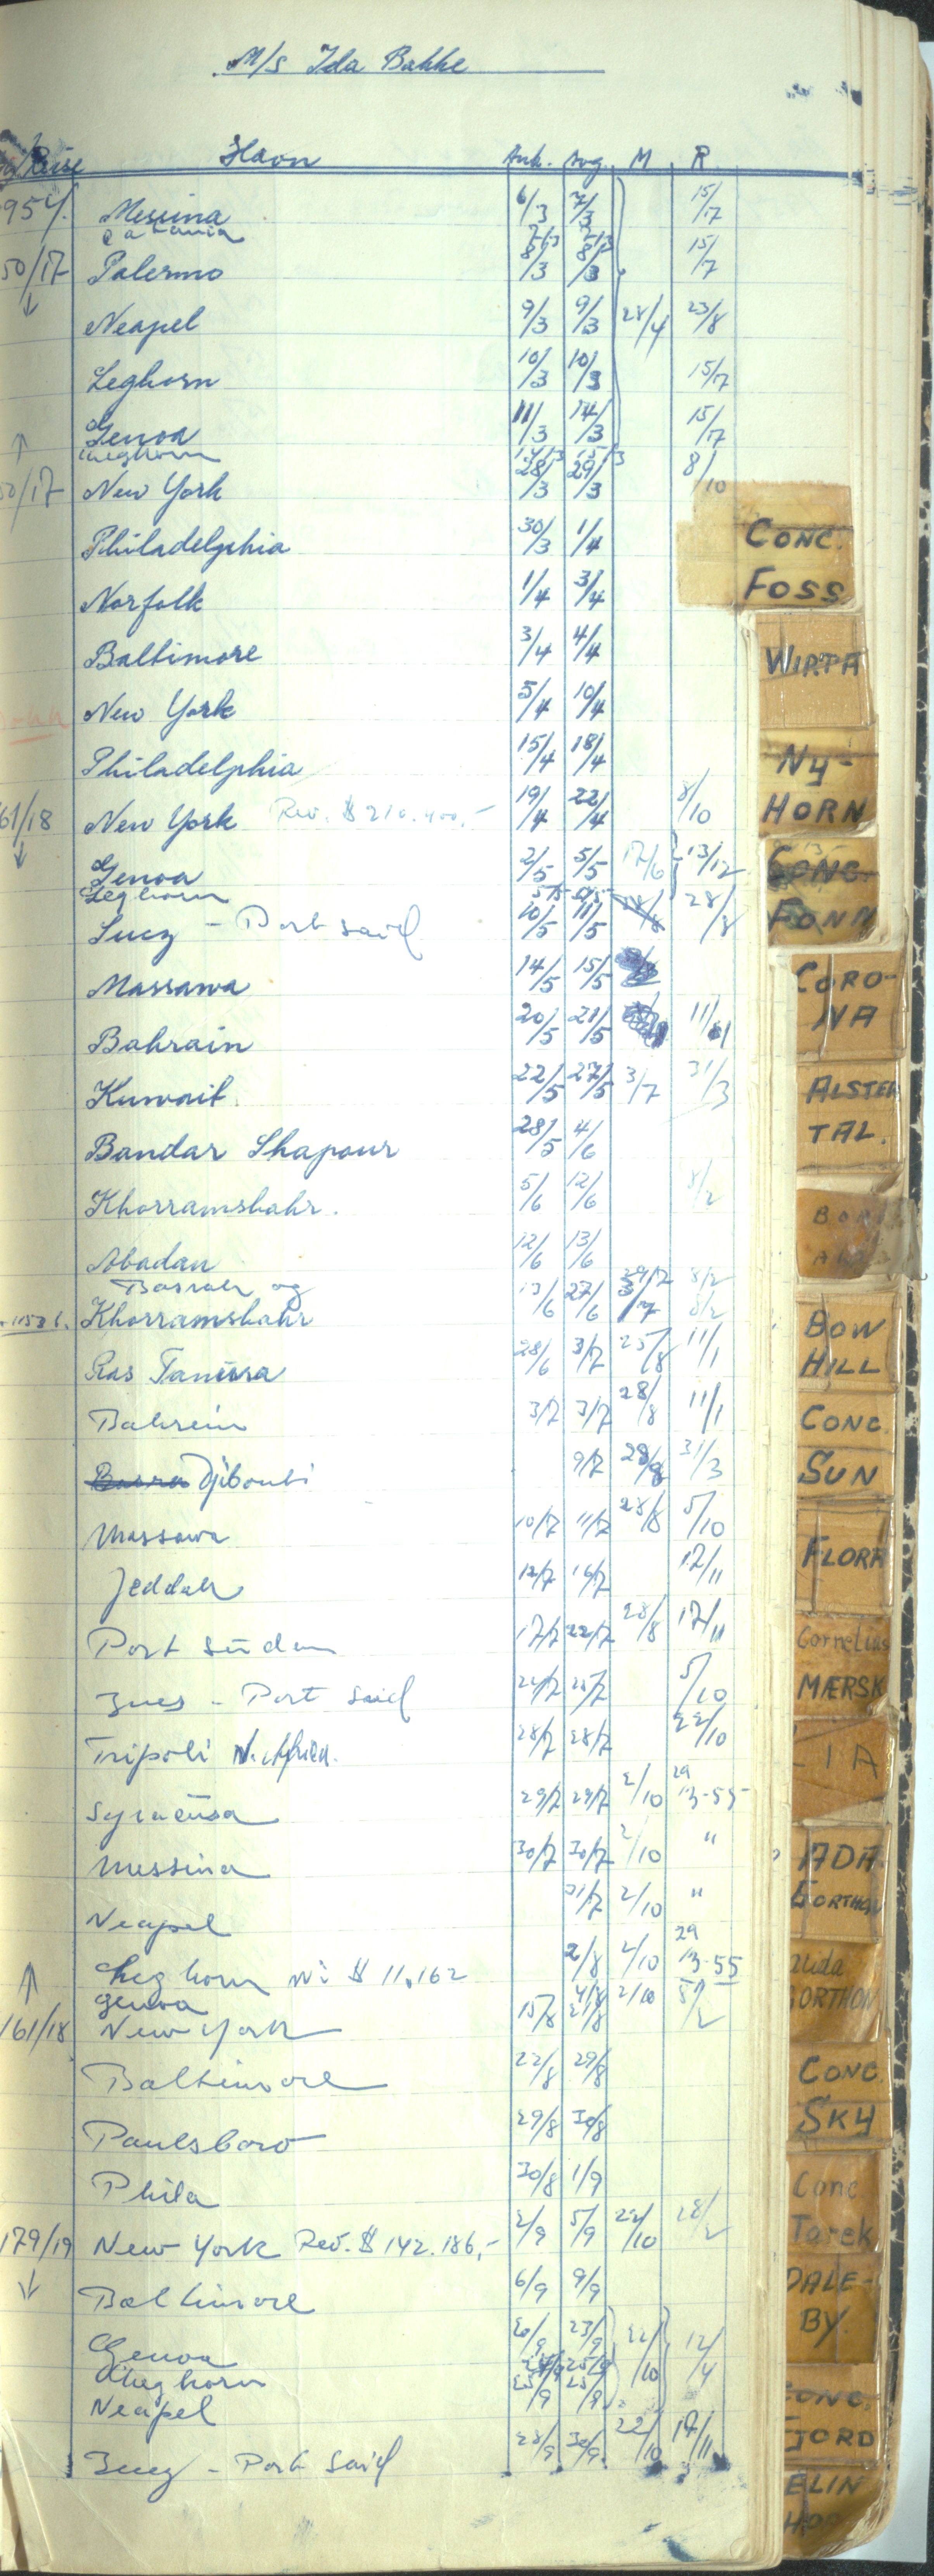 M/S Ida Bakke
Reise Havn Ank. Avg. M R.
Messina 6/3 7/3 15/17
Catania 7/3 7/3
50/17 Palermo 8/3 8/3 15/7
Neapel 9/3 9/3 28/4 23/8
Leghorn 10/3 10/3 15/17
Genoa 11/3 14/3 15/17
Leghorn
New York 28/3 29/3 8/10
Philadelphia 30/3 1/4
Norfolk 1/4 3/4
Baltimore 3/4 4/4
New York 5/4 10/4
Philadelphia 15/4 18/4
61/18 New York Rev. $ 210.400,- 19/4 22/4 8/10
Genoa 2/5 5/5 17/6 13/12
Leghorn 5/5 5/5
Suez - Port Said 10/5 11/5 28/8
Massawa 14/5 15/5
Bahrain 20/5 21/5 11/1
Kuwait. 22/5 27/5 3/7 31/3
Bandar Shapour 28/5 4/6
Khorramshahr. 5/6 12/6 8/2
Abadan 12/6 13/6
Basrah og 29/7 8/2
Khorramshahr 13/6 27/6 8/2
Ras Tanura 28/6 3/7 25/8 11/1
Bahrein 3/7 3/7 28/8 11/1
Basra Djibouti 9/7 28/8 31/3
Massawa 10/7 11/7 28/8 5/10
Jeddah 12/7 16/7 17/11
Port Sudan 17/7 22/7 28/8 17/11
Suez - Port Said 24/7 25/7 5/10
Tripoli N. Africa. 28/7 28/7 22/10
Syracusa 29/7 29/7 2/10 29/3-55
Messina 30/7 30/7 2/10 "
Neapel 31/7 2/10 "
Leghorn m: $ 11,162 2/8 2/10 29/3-55
Genoa 4/8 2/10 8/2
161/18 New York 15/8 21/8
Baltimore 22/8 29/8
Paulsboro 29/8 30/8
Phila 30/8 1/9
179/19 New York Rev. $ 142.186,- 2/9 5/9 22/10 28/2
Baltimore 6/9 9/9
Genoa 20/9 23/9 22/10 12/4
Leghorn 24/9 25/9
Neapel 25/9 25/9
Suez - Port Said 28/9 30/9 22/10 17/11
CONC.
FOSS
WIRTA
NY-
HORN
CONC.
FONN
CORO-
NA
ALSTER
TAL.
BOW
HILL
CONC.
SUN
FLORA
Cornelius
MÆRSK
ADA
GORTHON
GORTHON
CONC.
SKY
Conc.
Tarek
DALE-
BY.
CONC.
FJORD
ELIN